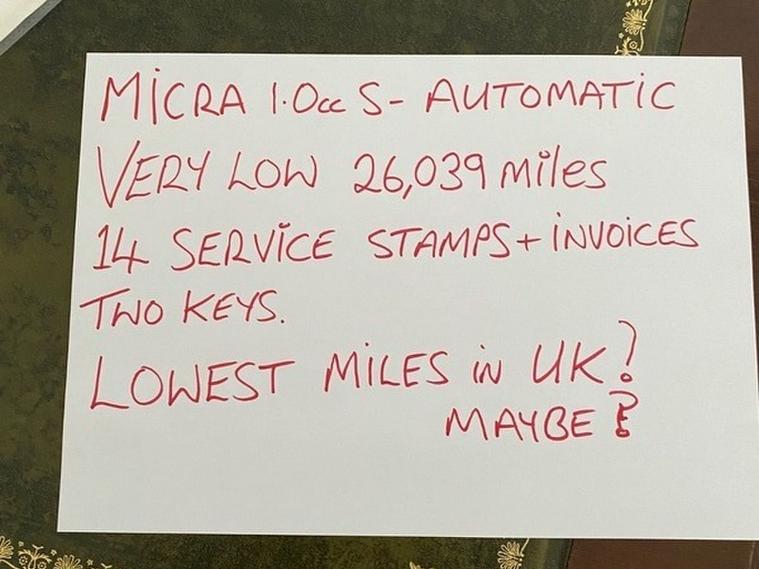 MiCRA 1.0cc S- AUTOMATiC
VERY LOW 26,039 miles
14 SERVICE STAMPS + iNVOiCES
TWO KEYS.
LOWEST MiLES iN UK?
MAYBE?